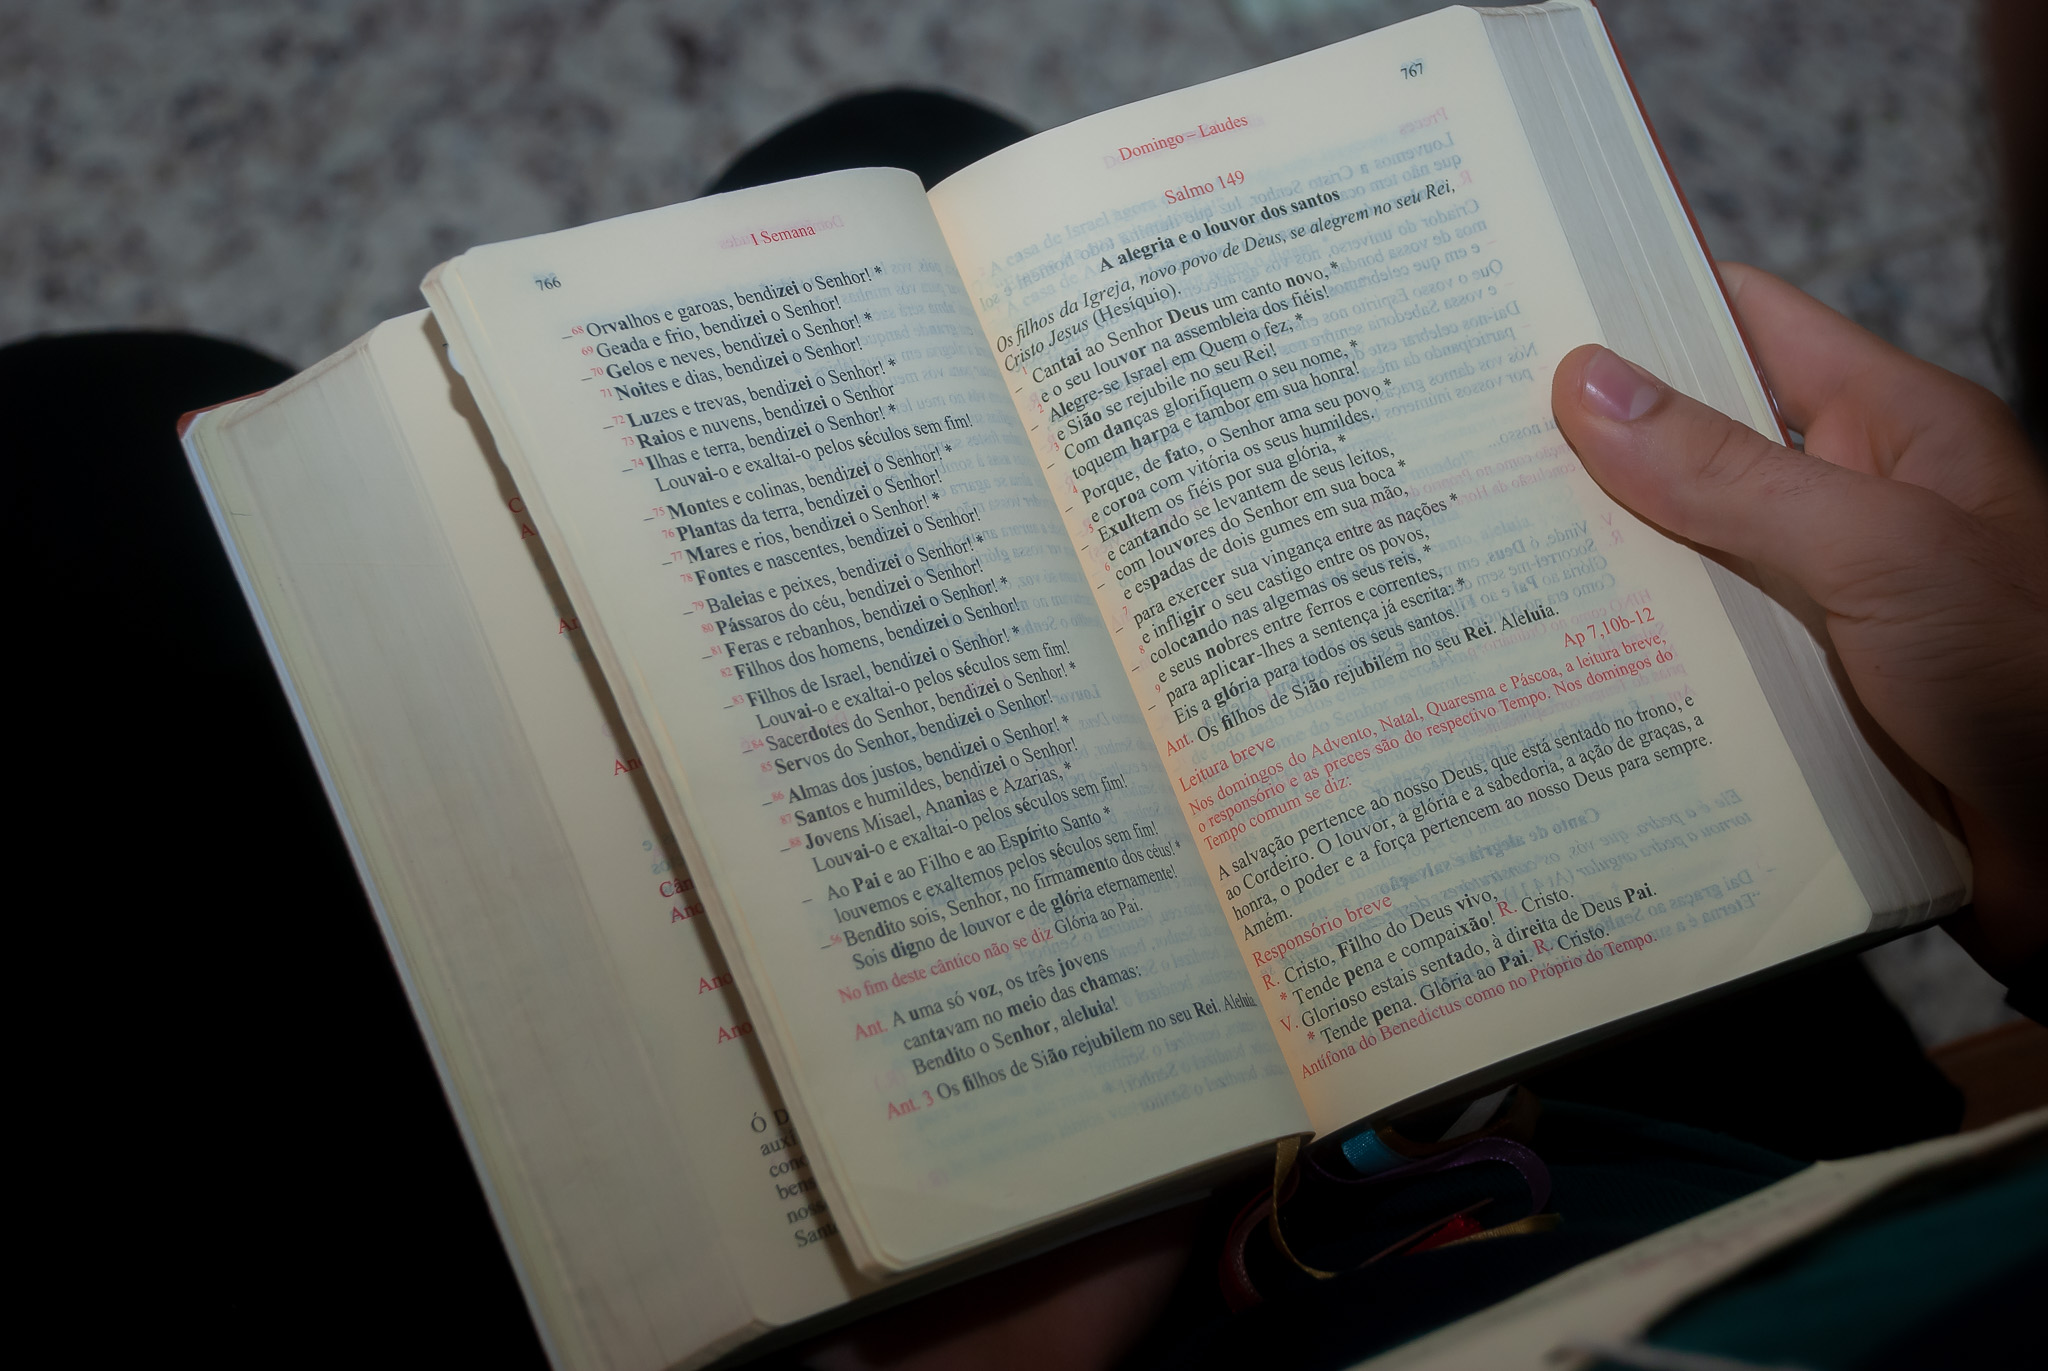 766
I Semana
_68 Orvalhos e garoas, bendizei o Senhor! *
69 Geada e frio, bendizei o Senhor!
_70 Gelos e neves, bendizei o Senhor! *
71 Noites e dias, bendizei o Senhor!
_72 Luzes e trevas, bendizei o Senhor! *
73 Raios e nuvens, bendizei o Senhor
_74 Ilhas e terra, bendizei o Senhor! *
Louvai-o e exaltai-o pelos séculos sem fim!
_75 Montes e colinas, bendizei o Senhor! *
76 Plantas da terra, bendizei o Senhor!
_77 Mares e rios, bendizei o Senhor! *
78 Fontes e nascentes, bendizei o Senhor!
_79 Baleias e peixes, bendizei o Senhor! *
80 Pássaros do céu, bendizei o Senhor!
_81 Feras e rebanhos, bendizei o Senhor! *
82 Filhos dos homens, bendizei o Senhor!
_83 Filhos de Israel, bendizei o Senhor! *
Louvai-o e exaltai-o pelos séculos sem fim!
_84 Sacerdotes do Senhor, bendizei o Senhor! *
85 Servos do Senhor, bendizei o Senhor!
_86 Almas dos justos, bendizei o Senhor! *
87 Santos e humildes, bendizei o Senhor!
_88 Jovens Misael, Ananias e Azarias, *
Louvai-o e exaltai-o pelos séculos sem fim!
– Ao Pai e ao Filho e ao Espírito Santo *
louvemos e exaltemos pelos séculos sem fim!
_56 Bendito sois, Senhor, no firmamento dos céus! *
Sois digno de louvor e de glória eternamente!
No fim deste cântico não se diz Glória ao Pai.
Ant. A uma só voz, os três jovens
cantavam no meio das chamas:
Bendito o Senhor, aleluia!
Ant. 3 Os filhos de Sião rejubilem no seu Rei. Aleluia.
767
Domingo – Laudes
Salmo 149
A alegria e o louvor dos santos
Os filhos da Igreja, novo povo de Deus, se alegrem no seu Rei,
Cristo Jesus (Hesíquio).
– 1 Cantai ao Senhor Deus um canto novo, *
e o seu louvor na assembleia dos fiéis!
– 2 Alegre-se Israel em Quem o fez, *
e Sião se rejubile no seu Rei!
– 3 Com danças glorifiquem o seu nome, *
toquem harpa e tambor em sua honra!
– 4 Porque, de fato, o Senhor ama seu povo *
e coroa com vitória os seus humildes.
– 5 Exultem os fiéis por sua glória, *
e cantando se levantem de seus leitos,
– 6 com louvores do Senhor em sua boca *
e espadas de dois gumes em sua mão,
– 7 para exercer sua vingança entre as nações *
e infligir o seu castigo entre os povos,
– 8 colocando nas algemas os seus reis, *
e seus nobres entre ferros e correntes,
– 9 para aplicar-lhes a sentença já escrita: *
Eis a glória para todos os seus santos.
Ant. Os filhos de Sião rejubilem no seu Rei. Aleluia.
Leitura breve Ap 7,10b-12
Nos domingos do Advento, Natal, Quaresma e Páscoa, a leitura breve,
o responsório e as preces são do respectivo Tempo. Nos domingos do
Tempo comum se diz:
A salvação pertence ao nosso Deus, que está sentado no trono, e
ao Cordeiro. O louvor, a glória e a sabedoria, a ação de graças, a
honra, o poder e a força pertencem ao nosso Deus para sempre.
Amém.
Responsório breve
R. Cristo, Filho do Deus vivo,
* Tende pena e compaixão! R. Cristo.
V. Glorioso estais sentado, à direita de Deus Pai.
* Tende pena. Glória ao Pai. R. Cristo.
Antífona do Benedictus como no Próprio do Tempo.